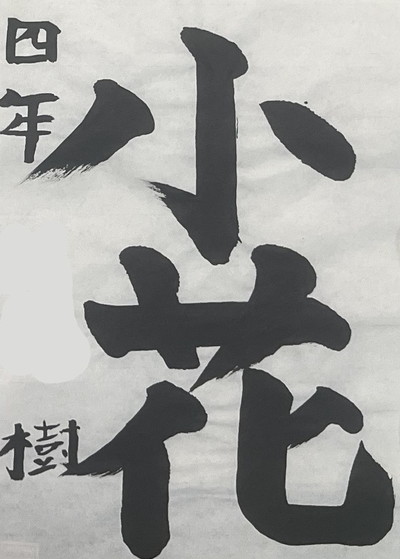 小花
四年
樹